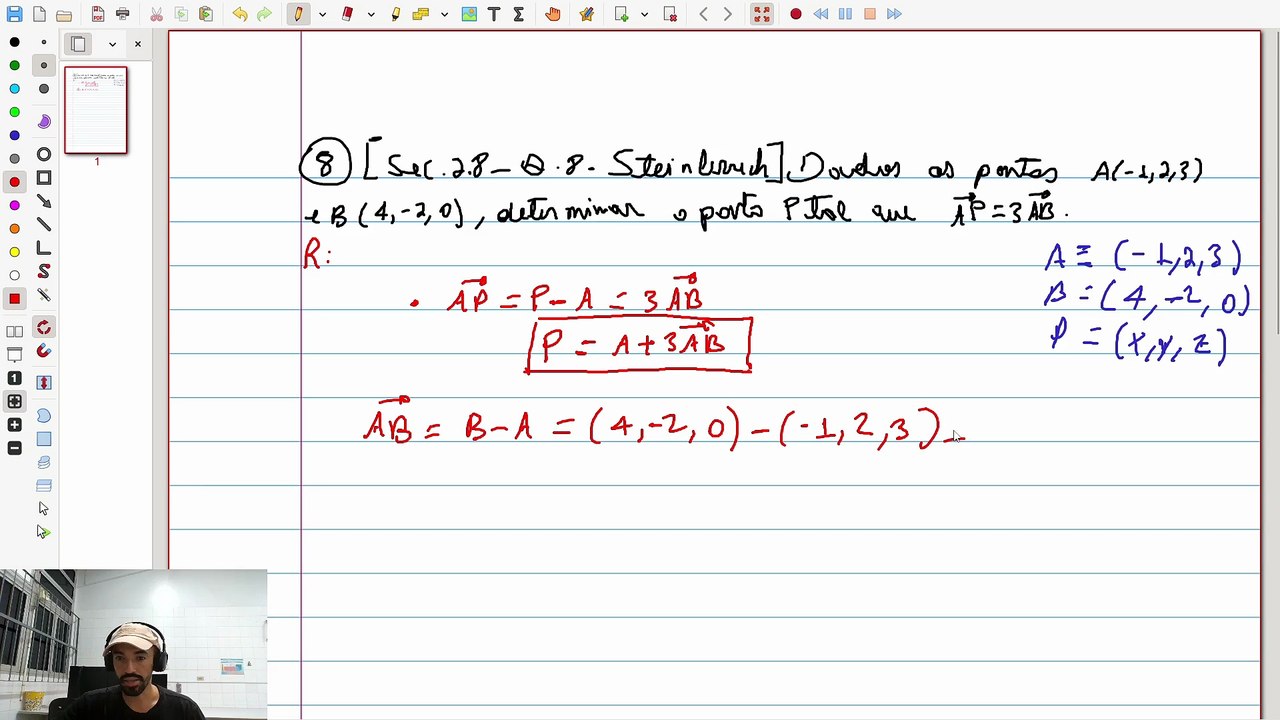 8 [Sec. 2.8 - Q. 8 - Steinbruch] Dados os pontos A(-1,2,3)
e B(4,-2,0), determinar o ponto P tal que AP = 3AB.
R:
A = (-1,2,3)
• AP = P - A = 3AB
B = (4,-2,0)
P = A + 3AB
P = (x,y,z)
AB = B - A = (4,-2,0) - (-1,2,3) =
1